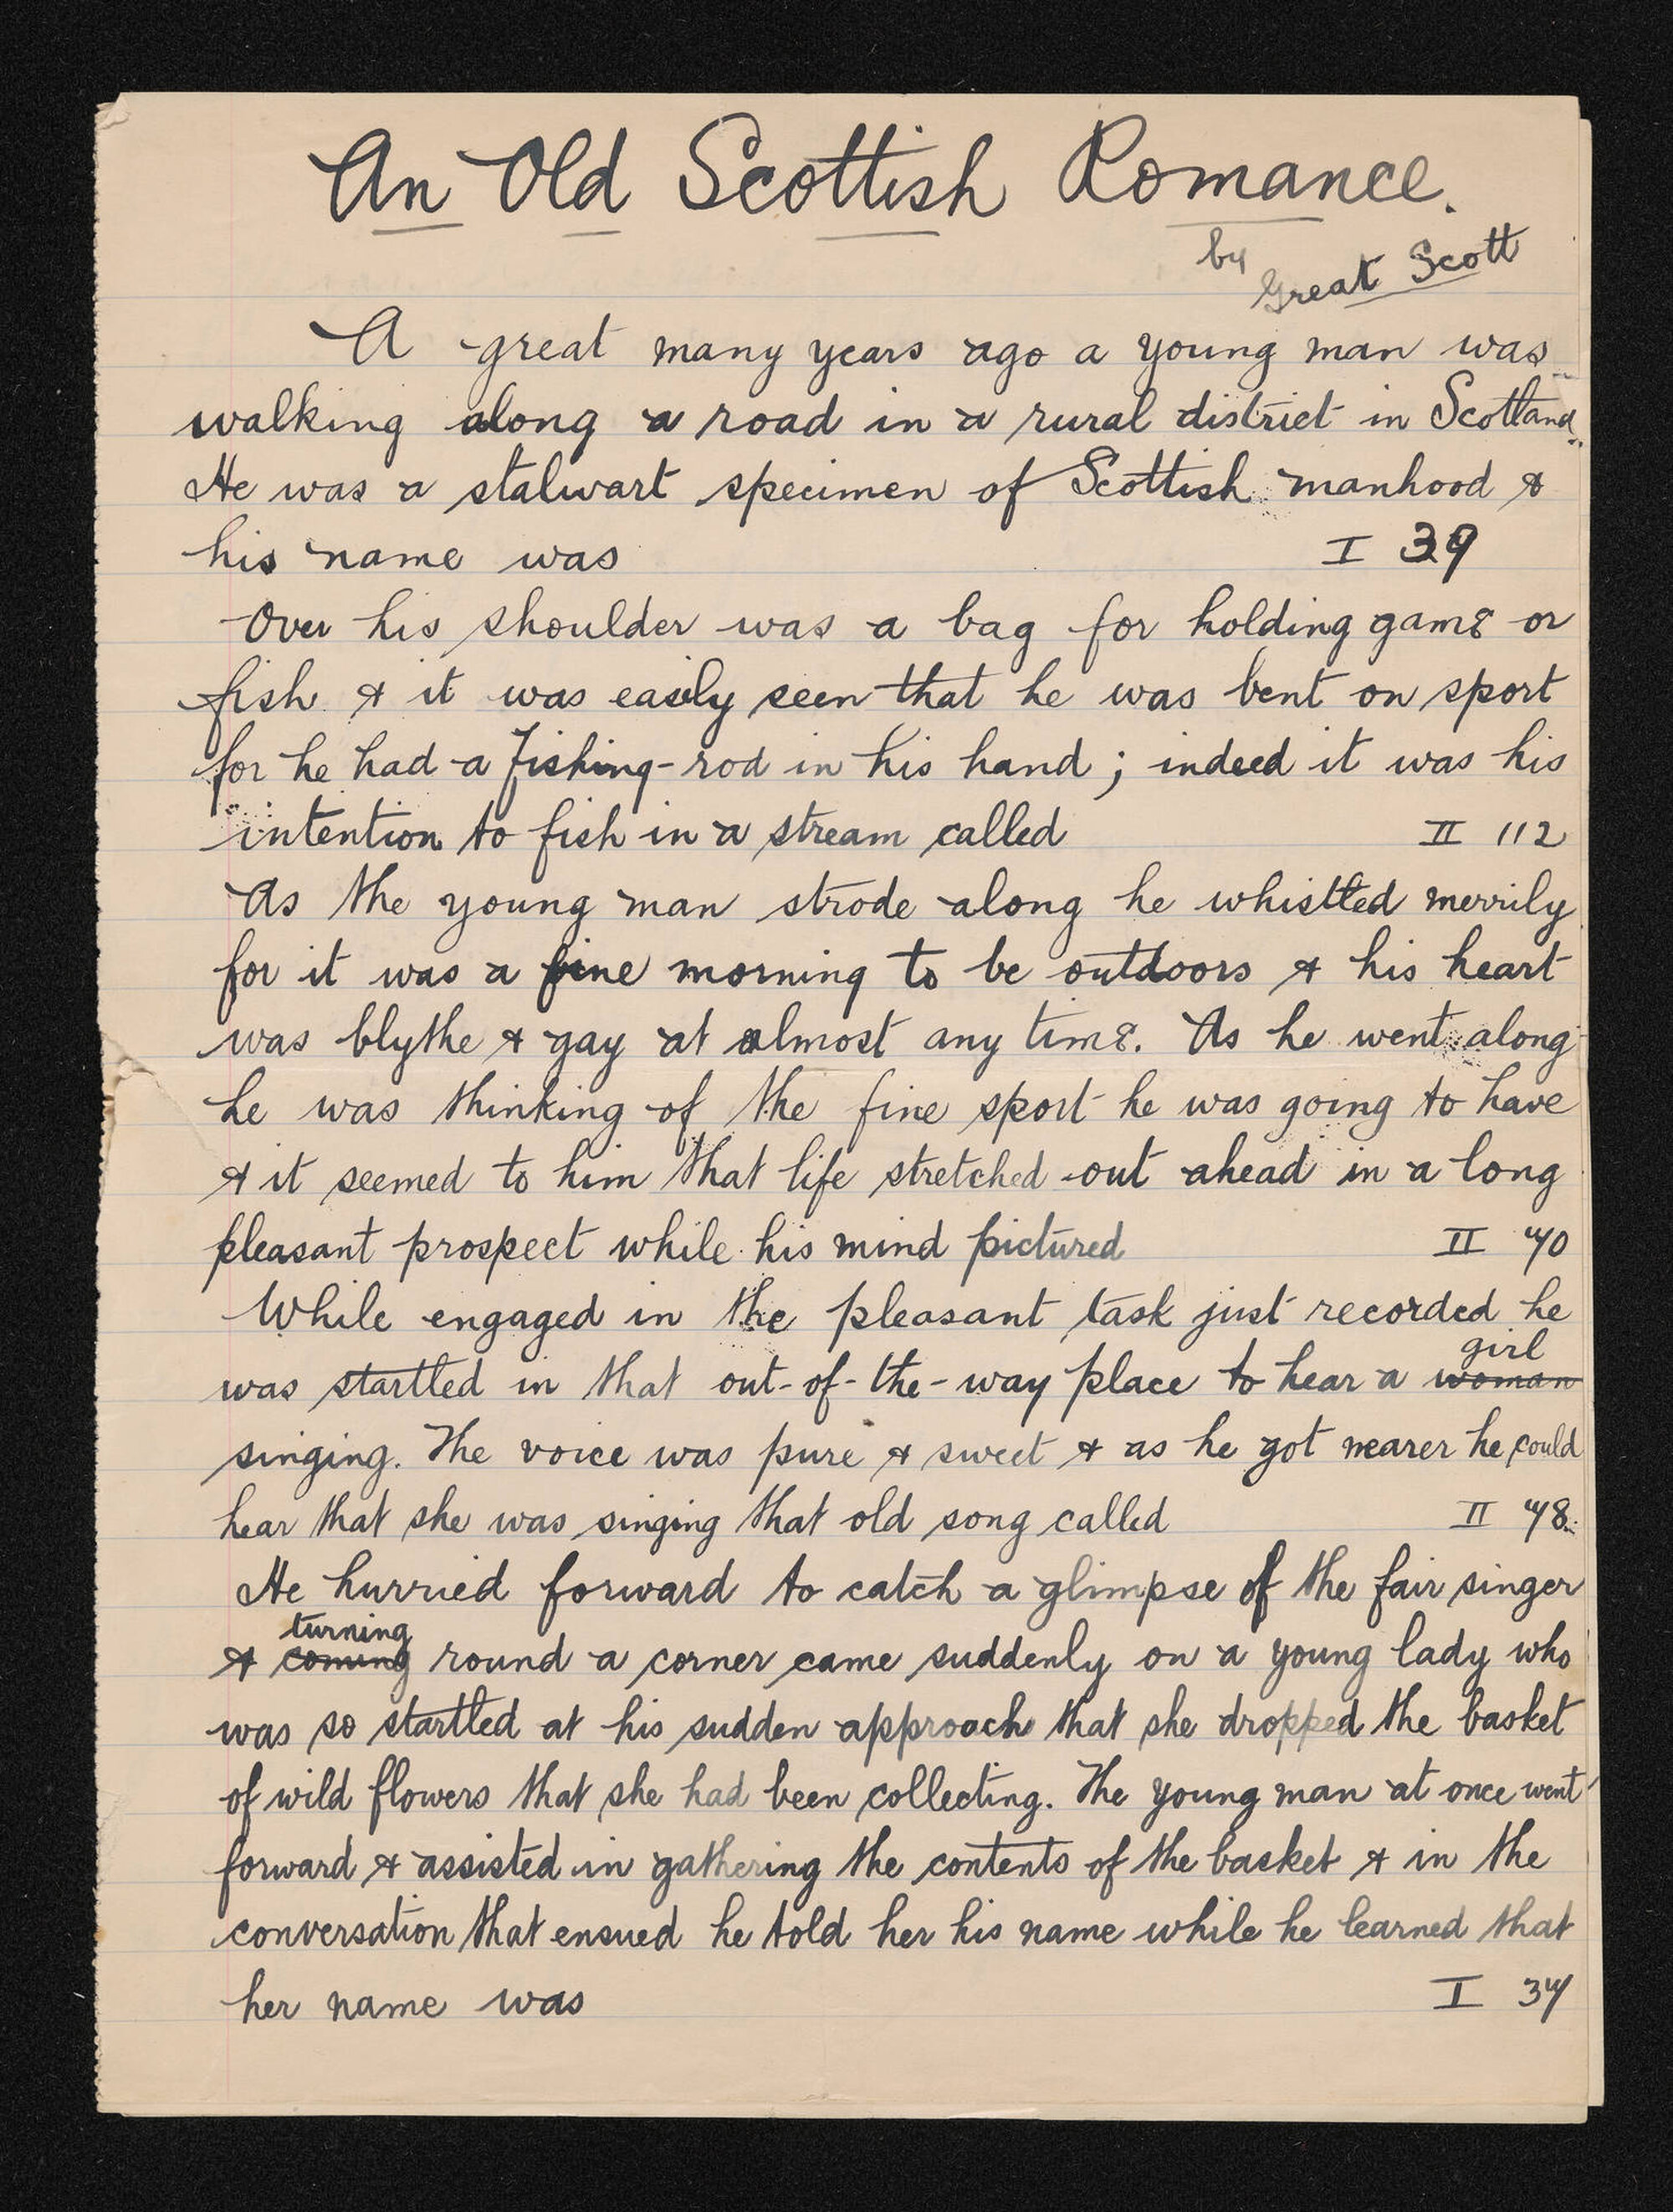 An Old Scottish Romance.
by Great Scott
A great many years ago a young man was
walking along a road in a rural district in Scotland.
He was a stalwart specimen of Scottish manhood &
his name was I 39
Over his shoulder was a bag for holding game or
fish & it was easily seen that he was bent on sport
for he had a fishing-rod in his hand; indeed it was his
intention to fish in a stream called II 112
As the young man strode along he whistled merrily
for it was a fine morning to be outdoors & his heart
was blythe & gay at almost any time. As he went along
he was thinking of the fine sport he was going to have
& it seemed to him that life stretched out ahead in a long
pleasant prospect while his mind pictured II 40
While engaged in the pleasant task just recorded he
girl
was startled in that out-of-the-way place to hear a woman
singing. The voice was pure & sweet & as he got nearer he could
hear that she was singing that old song called II 48
He hurried forward to catch a glimpse of the fair singer
turning
& coming round a corner came suddenly on a young lady who
was so startled at his sudden approach that she dropped the basket
of wild flowers that she had been collecting. The young man at once went
forward & assisted in gathering the contents of the basket & in the
conversation that ensued he told her his name while he learned that
her name was I 34